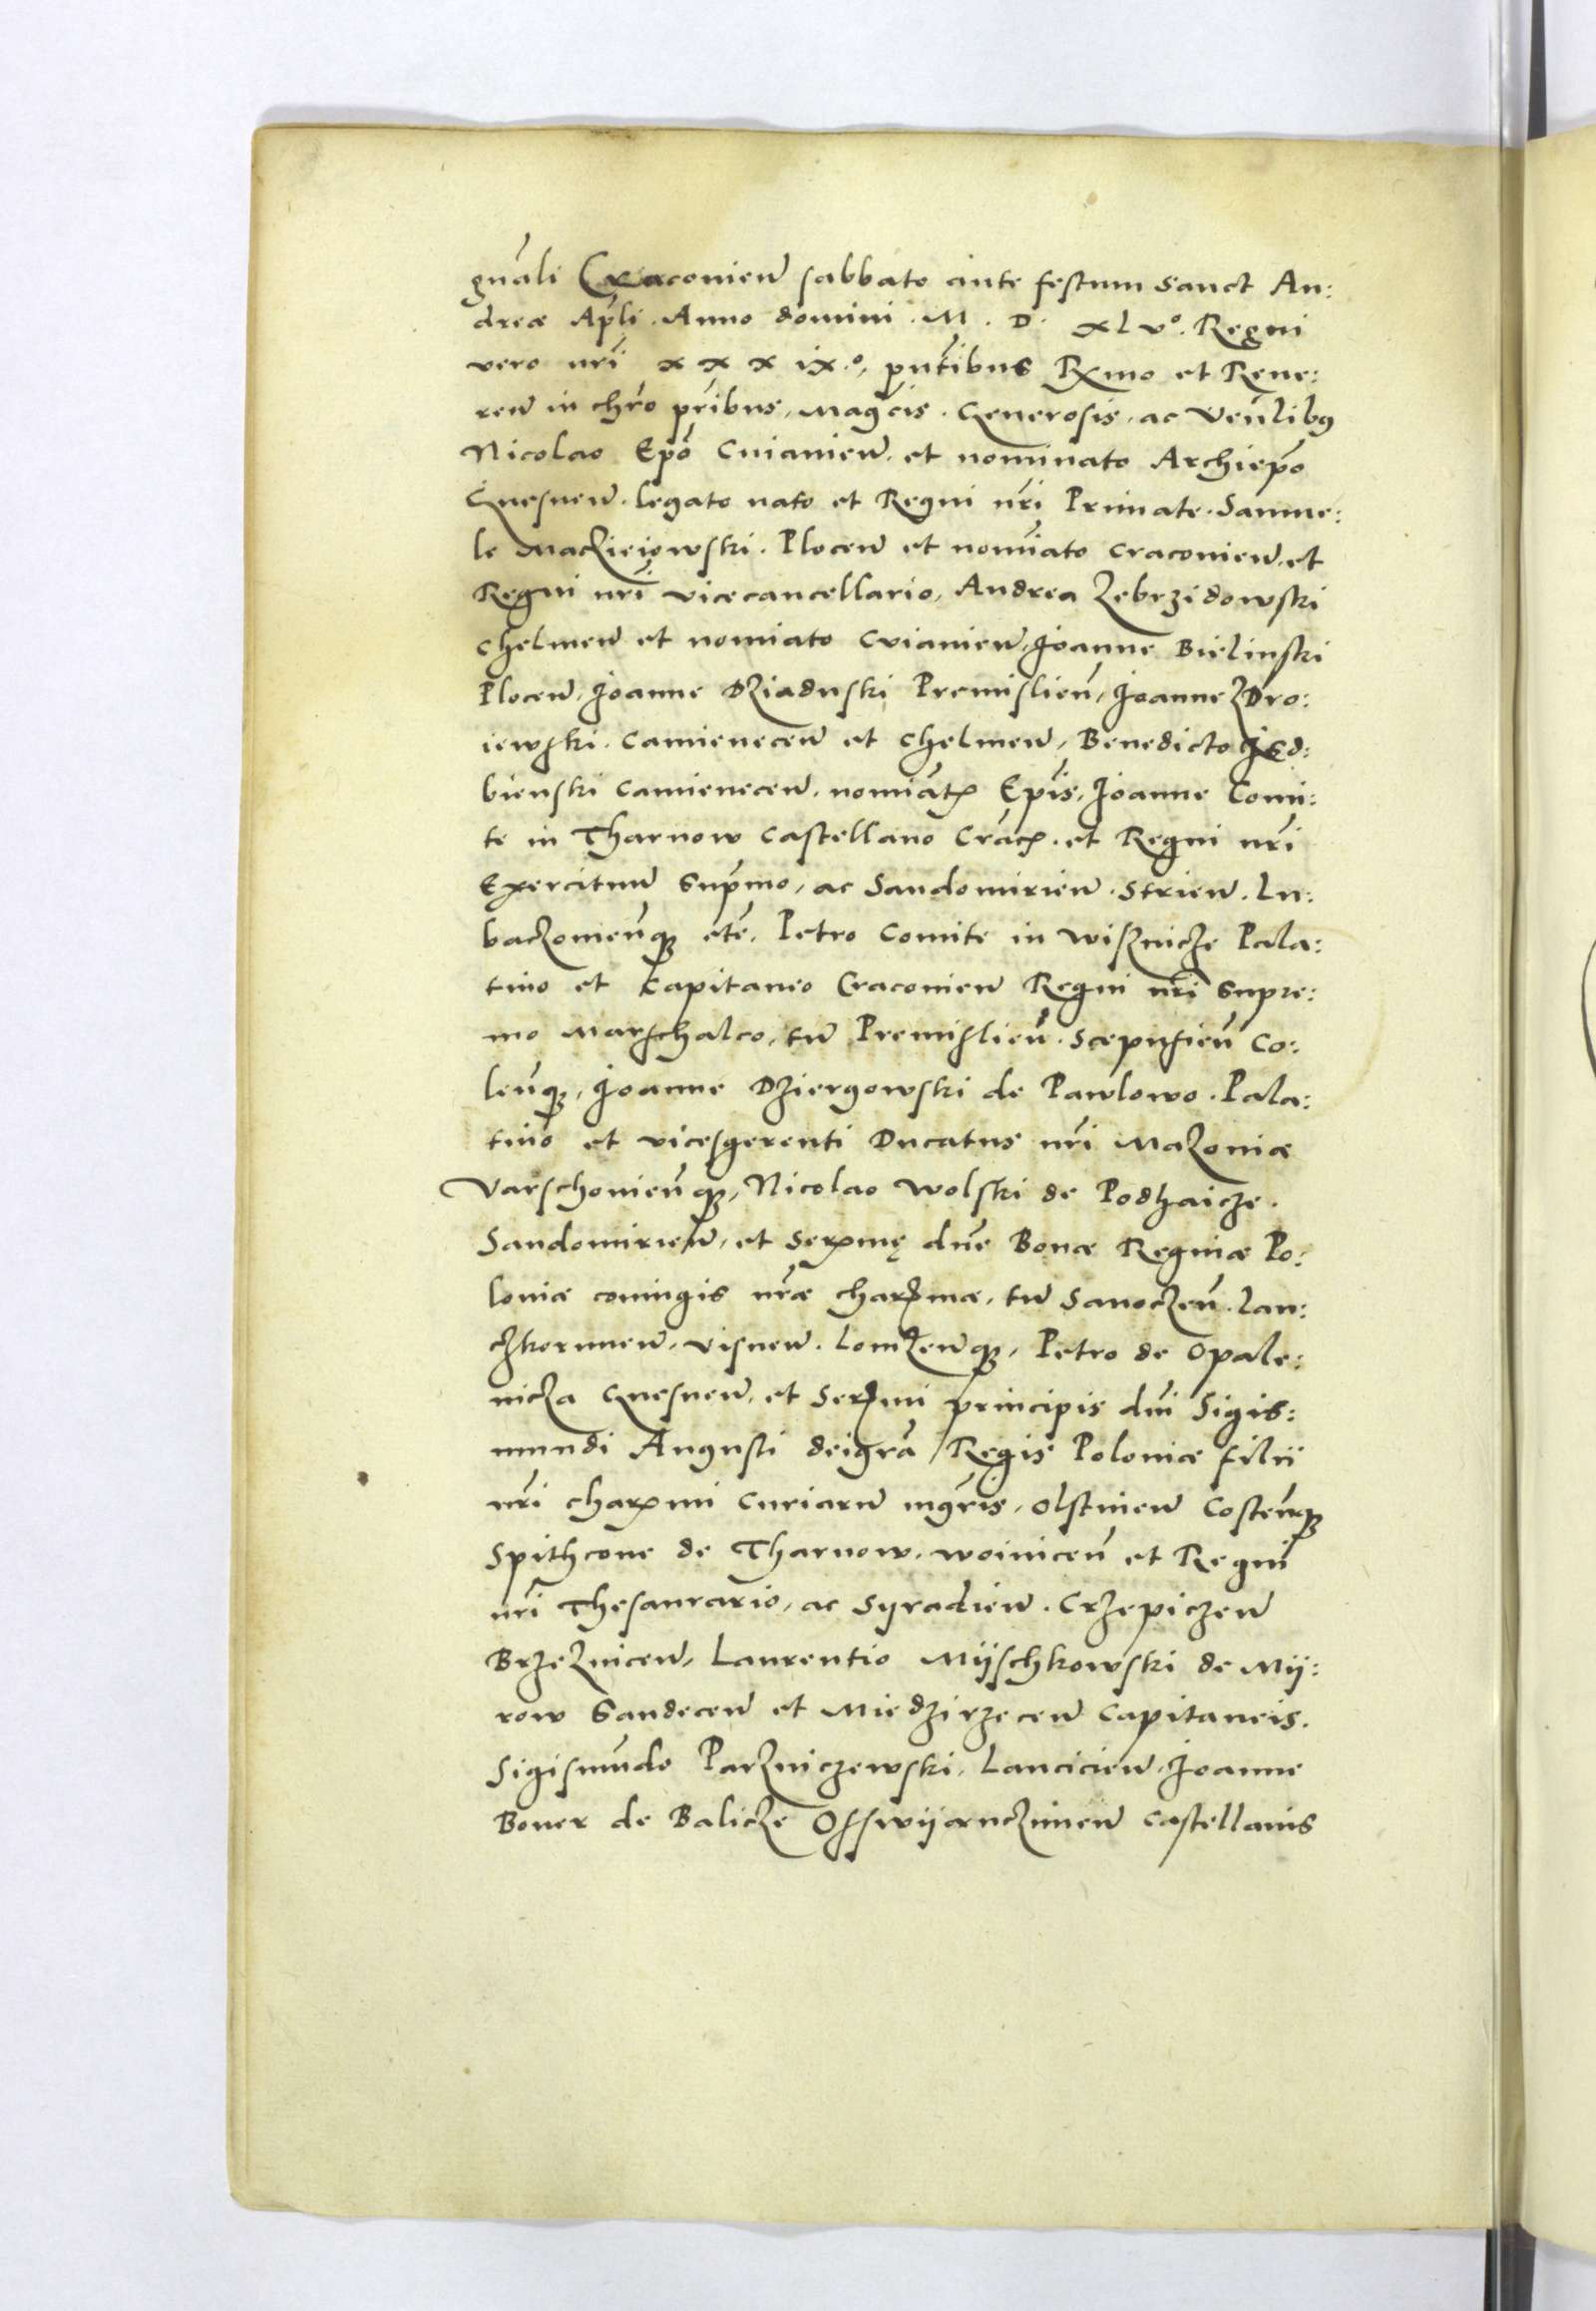 gnãli Cracovien̄ sabbato ante festum Sanct An:
dreæ Apľi. Anno domini. M. D. XLVº. Regni
vero nr̃i x x x ix.º, pn̄tibus Rx̃mo et Reue:
ren̄ in chr̃o pr̃ibus, Magcis. Generosis, ac Veñlibꝫ
Nicolao Epõ Cuiavien̄. et nominato Archiepõ
Gnesnen̄. legato nato et Regni nr̃i Primate. Samue:
le Macziejowski. Plocen̄ et nomiãto Cracovien̄. et
Regni nr̃i vicecancellario, Andrea Zebrzidowski
Chelmen̄ et nomiato Cviavien̄, Joanne Bielinski
Plocen̄, Joanne Dziaduski Premislien̄, Joanne Dro:
iewski. Camienecen̄ et Chelmen̄, Benedicto Isd:
bienski Camienecen̄. nomiãtꝭ Ep̃is, Joanne Comi:
te in Tharnow Castellano Cracꝭ. et Regni nr̃i
Exercituũ Supr̃mo, ac Sandomirien̄. Strien̄. Lu:
baczovien̄qꝫ etc̃. Petro Comite in Wisnicze Pala:
tino et Capitaneo Cracovien̄ Regni nr̃i Supre:
mo Marschalco, tũ Premislien̄. Scepusien̄ Co:
len̄qꝫ, Joanne Dziergowski de Pawlowo. Pala:
tino et vicesgerenti Ducatus nr̃i Mazoviæ
Varschovien̄qꝫ, Nicolao Wolski de Podhaicze.
Sandomirien̄, et Serxmę dñe Bonæ Reginæ Po:
loniæ coniugis nr̃æ charxmæ, tũ Sanoczen̄. Lan:
czkorunen̄, Visnen̄. Lomzen̄qꝫ, Petro de Opale:
nicza Gnesnen̄. et Serxmi principis dñi Sigis:
mundi Augusti deigrã Regis Poloniæ filii
nr̃i charxmi Curiarũ mgr̃is, Olstinen̄ Costen̄qꝫ
Spithcone de Tharnow. Woinicen̄ et Regni
nr̃i Thesaurario, ac Syradien̄. Crzepiczen̄
Brzeznicen̄, Laurentio Mijschkowski de Mij:
row Sandecen̄ et Miedzirzecen̄ Capitaneis.
Sigismũdo Parzniczewski. Lancicien̄. Joanne
Boner de Balicze Osswijanczimen̄ Castellanis